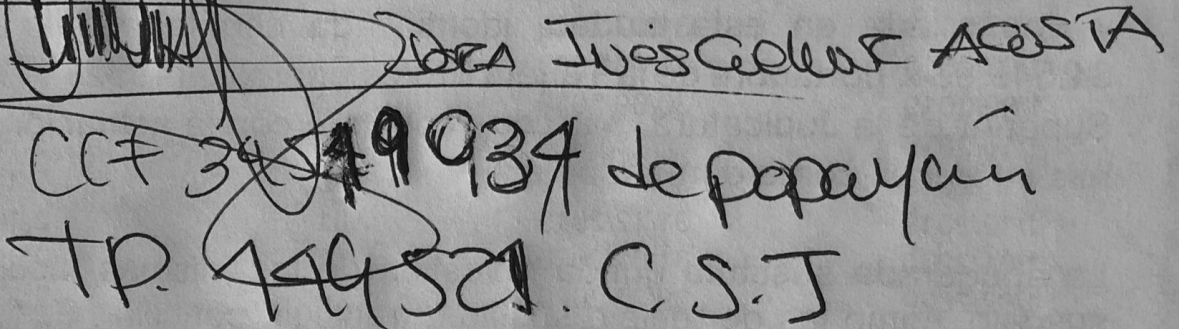 Dora Ines Cuellar ACOSTA
CC# 34549934 de popayán
TP. 444521. C.S.J